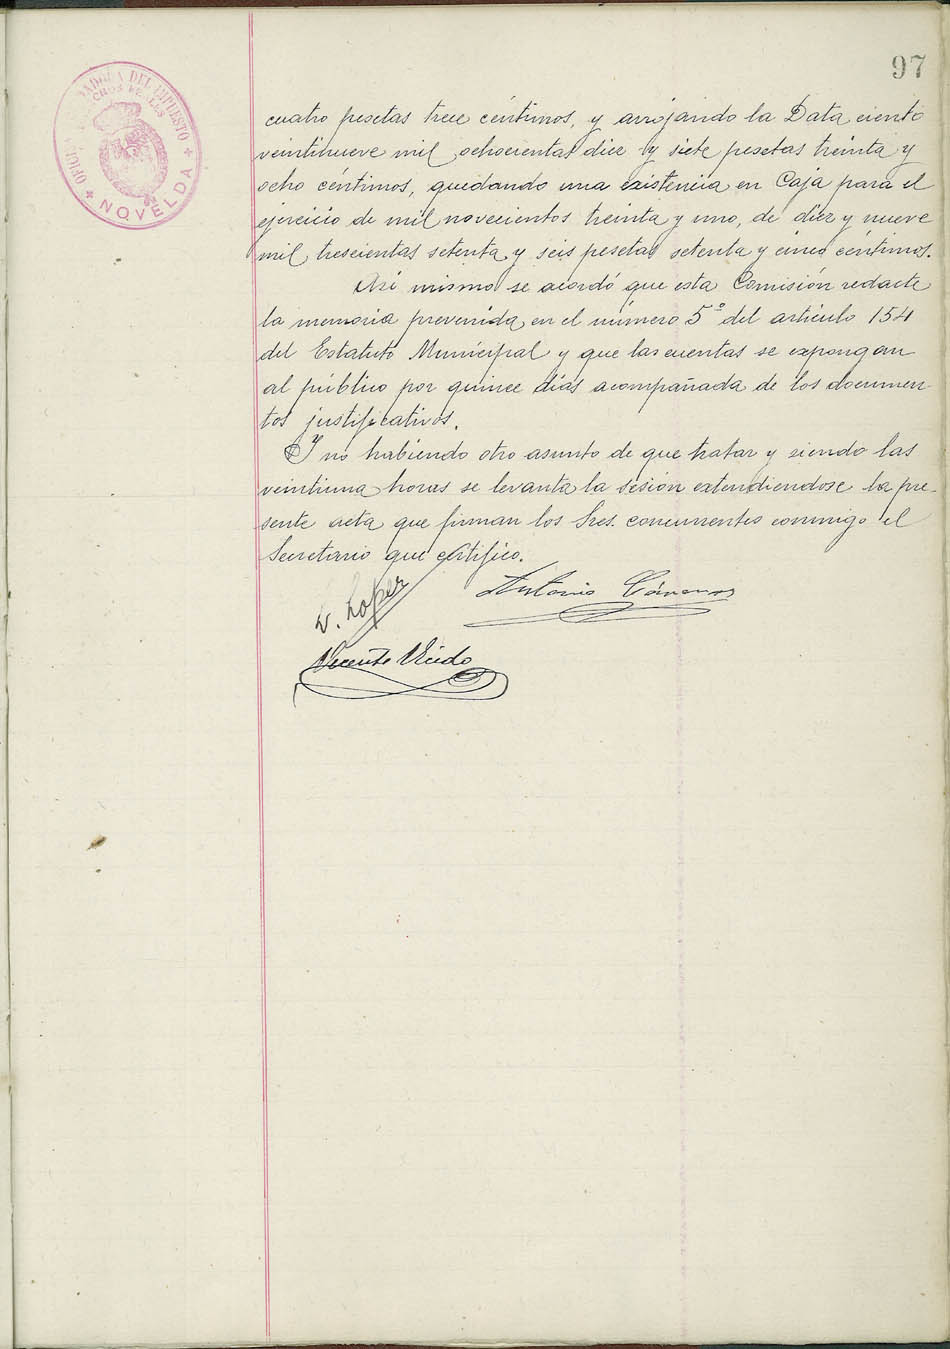 97
NOVELDA
cuatro pesetas trece céntimos, y arrojando la Data ciento
veintinueve mil ochocientas diez y siete pesetas treinta y
ocho céntimos, quedando una existencia en Caja para el
ejercicio de mil novecientos treinta y uno, de diez y nueve
mil trescientas setenta y seis pesetas setenta y cinco céntimos.
Así mismo se acordó que esta Comisión redacte
la memoria prevenida en el número 5º del artículo 154
del Estatuto Municipal y que las cuentas se expongan
al público por quince días acompañada de los documen-
tos justificativos.
Y no habiendo otro asunto de que tratar y siendo las
veintiuna horas se levanta la sesión extendiendose la pre-
sente acta que firman los Sres. concurrentes conmigo el
Secretario que certifico.
V. Lopez
Antonio
Vicente